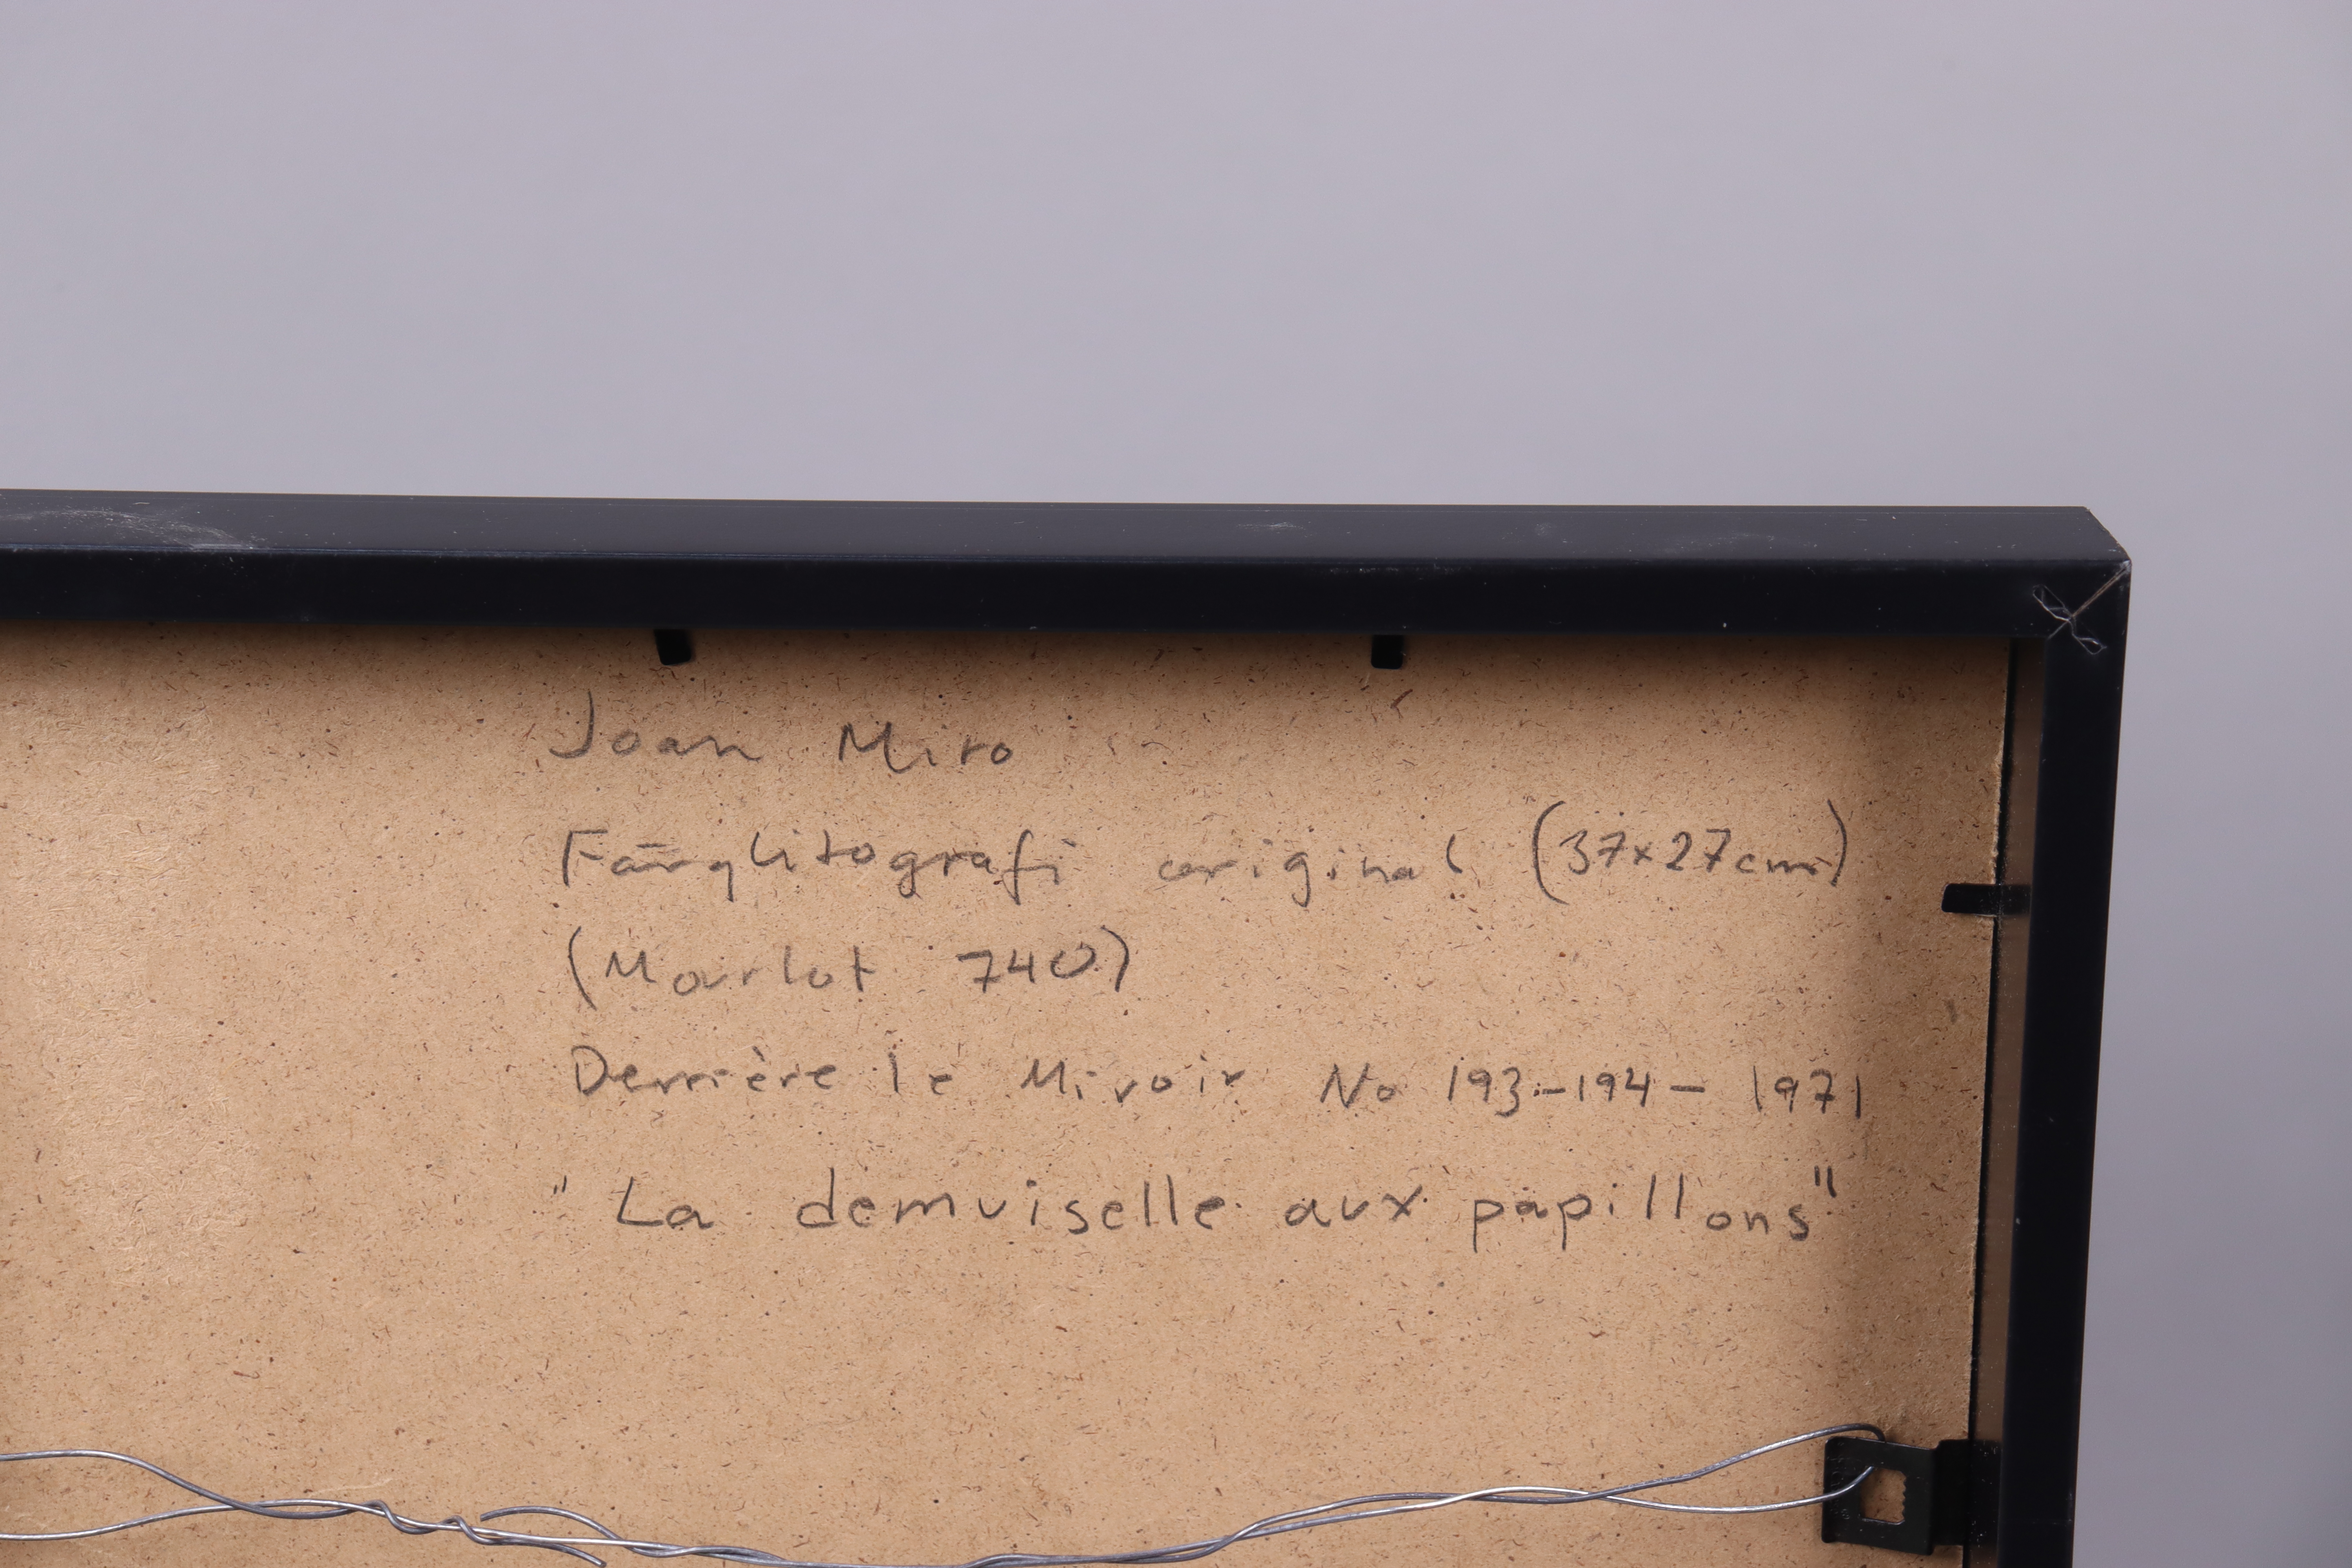 Joan Miro
Färglitografi original (37x27cm)
(Mourlot 740)
Derrière le Miroir No 193-194- 1971
"La demuiselle aux papillons"